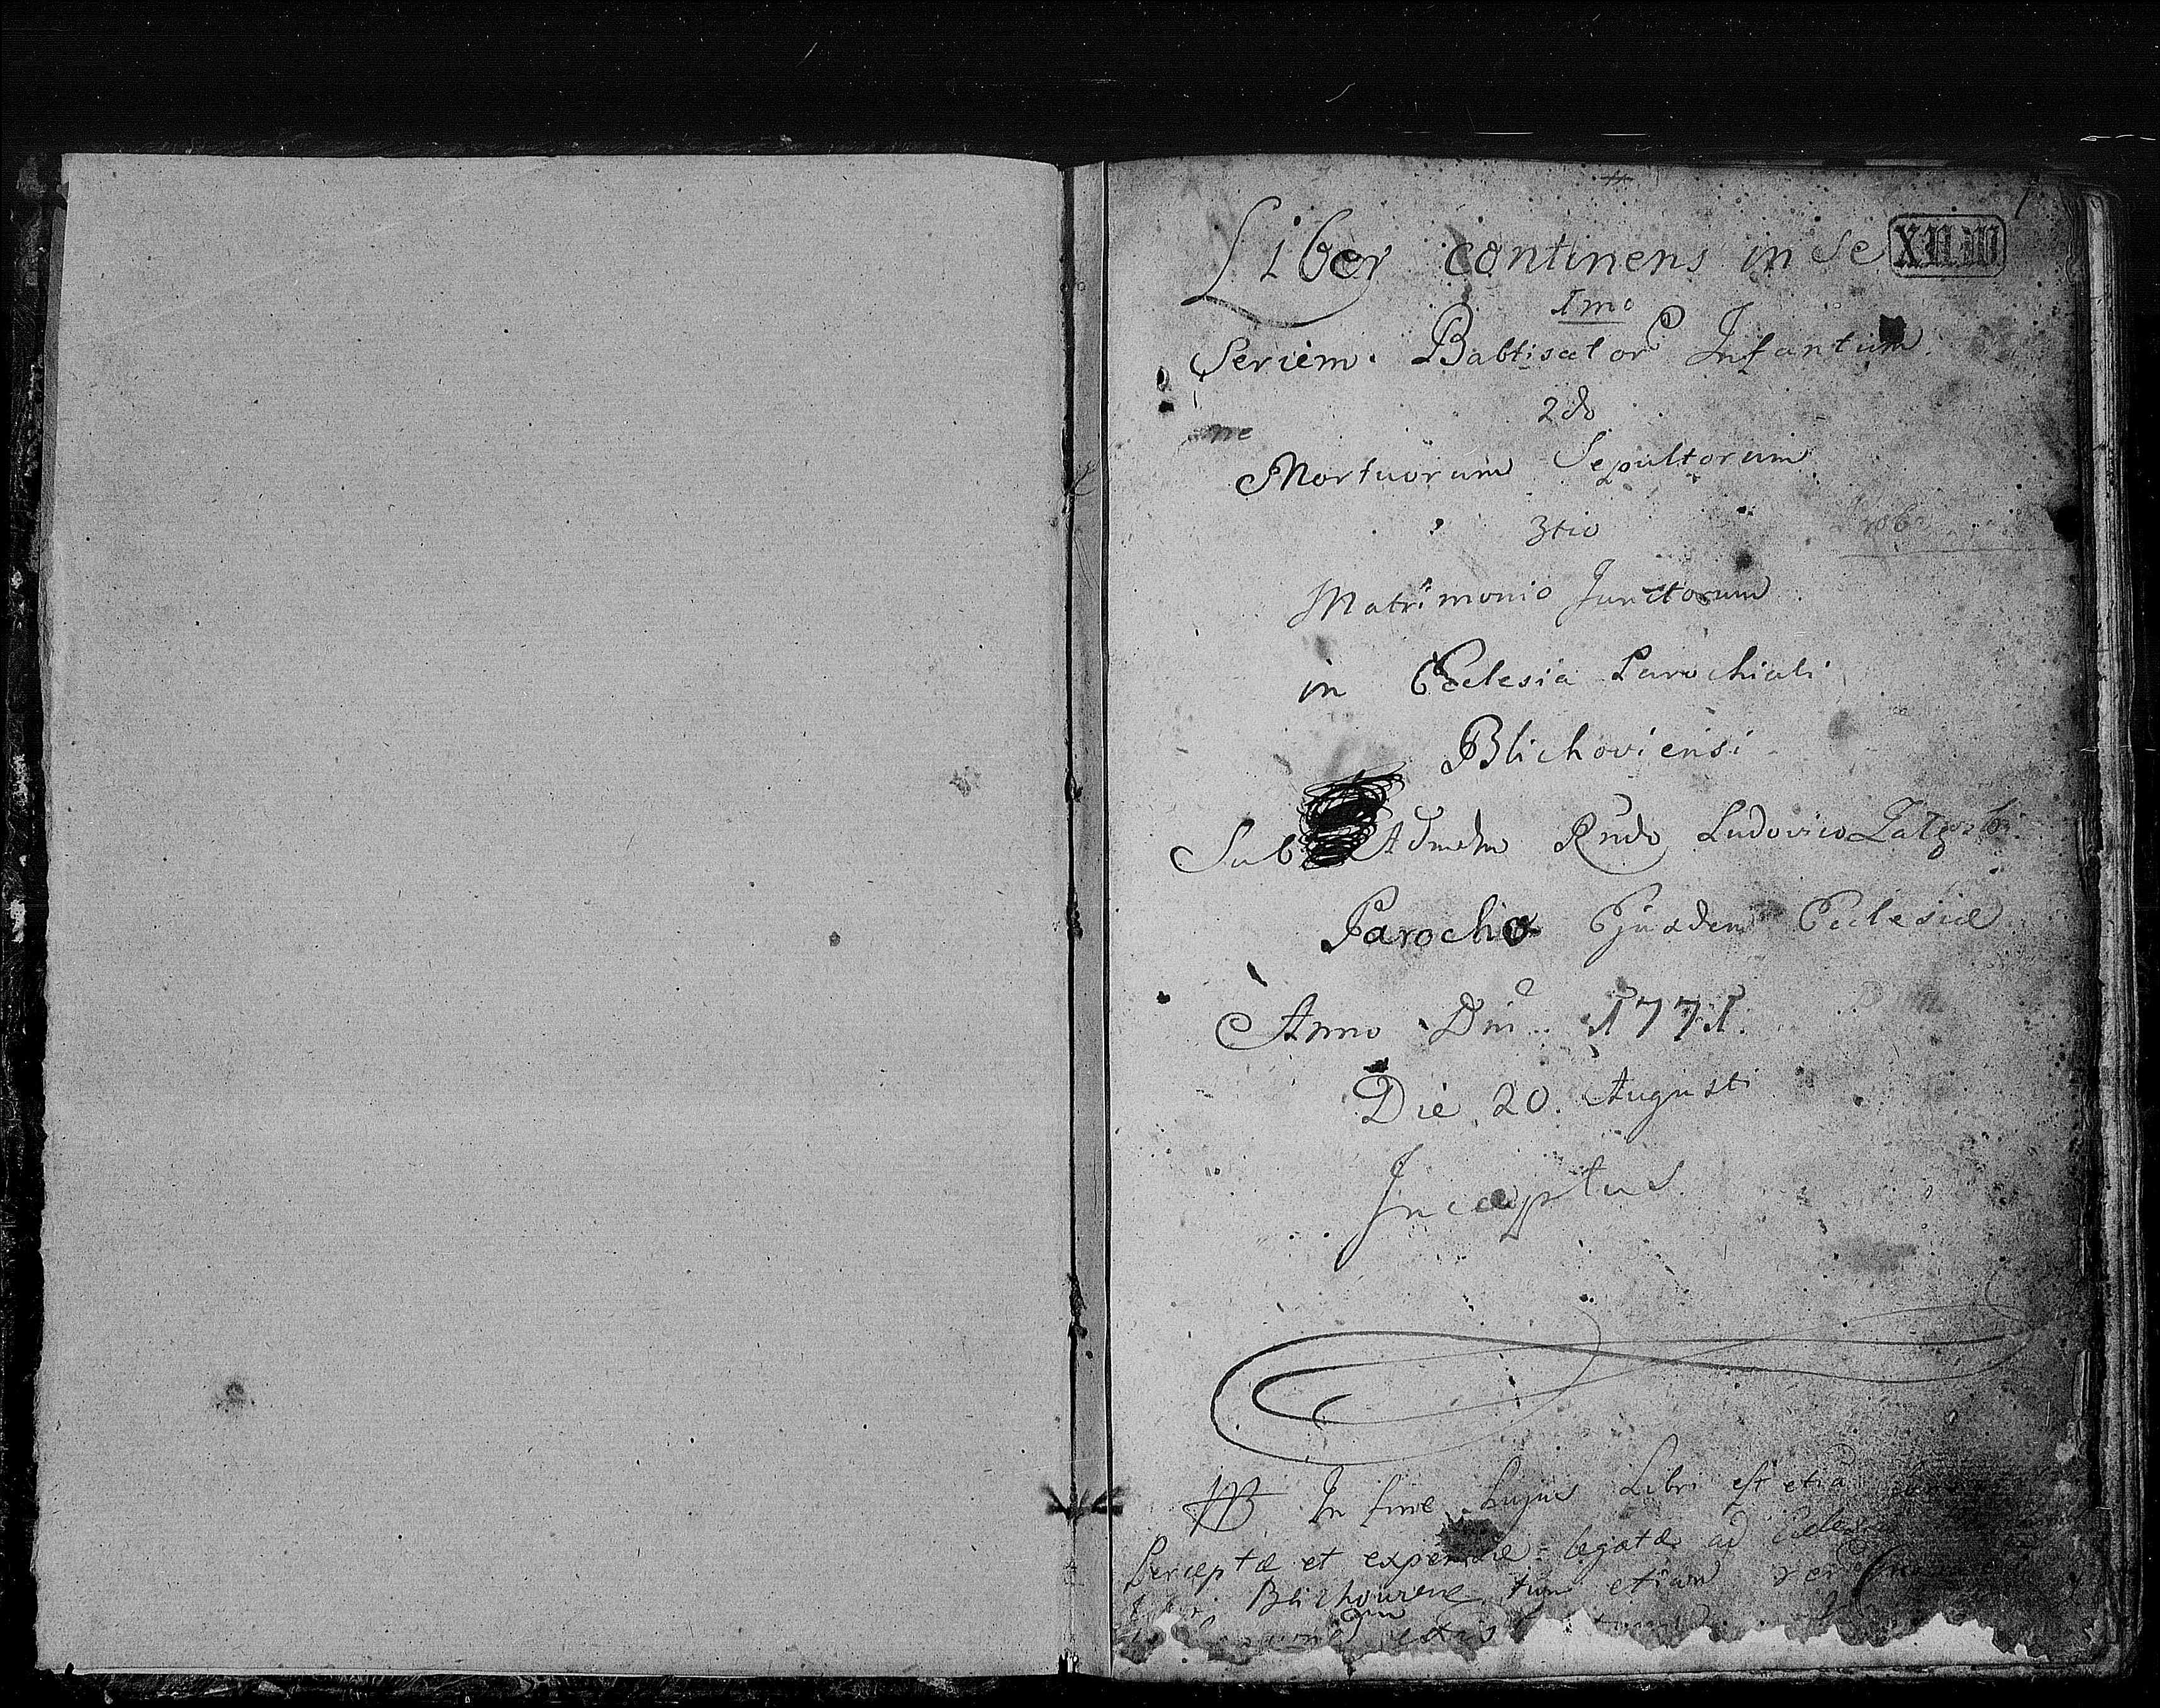 Liber continens in se XII-III
Imo
Seriem Babtisator Infantum
2do
Mortuorum Sepultorum
3tio
Matrimonio Junctorum
in Ecclesia Parochiali
Blichoviensi
Sub Admdm Rndo Ludovico
Parocho Ejusdem Ecclesiæ
Anno Dni 1771.
Die 20. Augusti
Inceptus
NB In fine hujus Libri est etiā
Perceptæ et expensæ legatæ ad
Blichoviene tum etiam